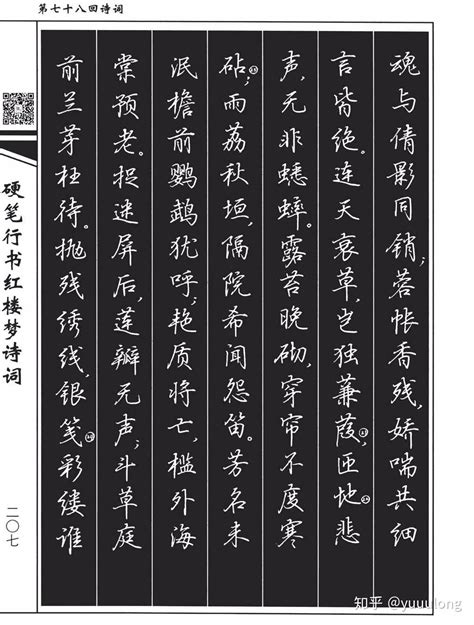 第七十八回诗词
魂与倩影同销;蓉帐香残,娇喘共细
言皆绝。连天衰草,岂独蒹葭,匝地悲
声,无非蟋蟀。露苔晚砌,穿帘不度寒
砧;雨荔秋垣,隔院希闻怨笛。芳名未
泯檐前鹦鹉犹呼;艳质将亡,槛外海
棠预老。捉迷屏后,莲瓣无声;斗草庭
前兰芽枉待。抛残绣线,银笺彩缕谁
硬笔行书红楼梦诗词
二〇七
知乎 @yuuulong